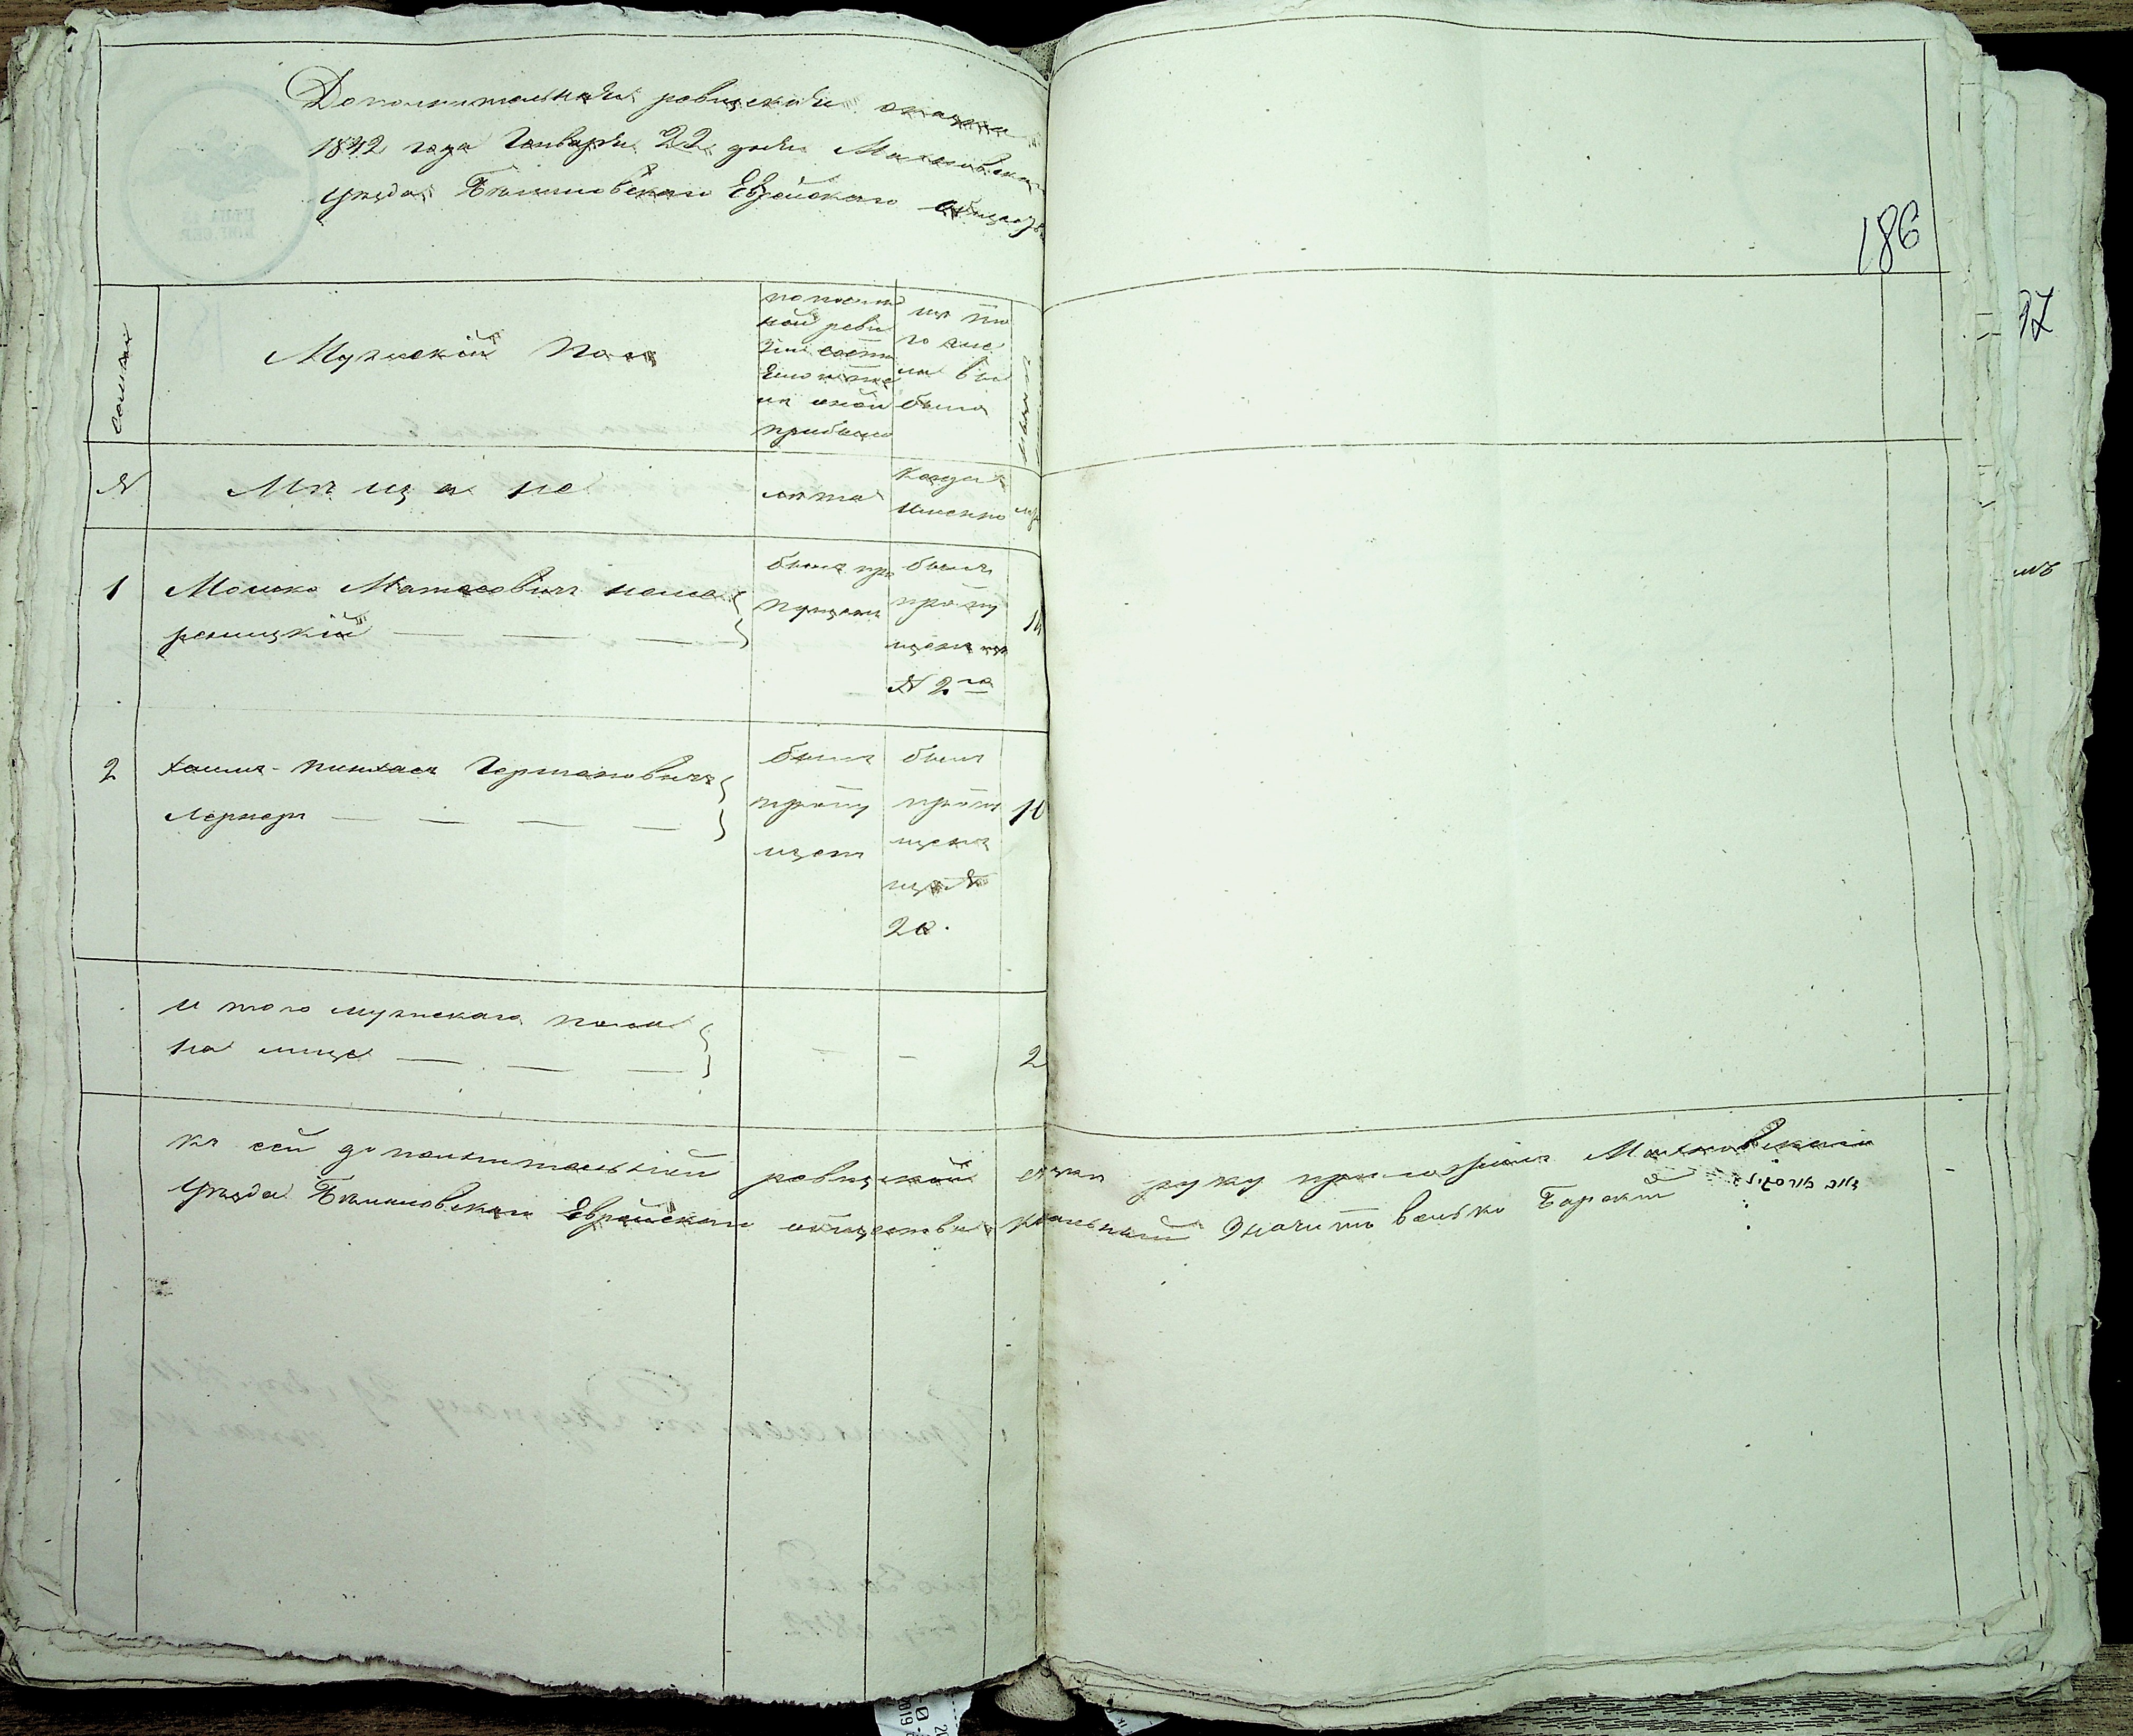 Дополнительная ревизская сказка
1842 года Генваря 22 дня Махновскаго
уезда Белиловскаго Еврейскаго общества
186
семьи
Мужской Полъ
по послед
ней реви
зіи состо
яло и после
оной
прибыло
изъ то
го чис
ла вы
было
№
Мѣщане
лѣта
когда
именно
лѣта
1
Мошко Матесовичъ
былъ про
пущенъ
былъ
пропу
щенъ
№ 2го
2
Хаимъ-Пинхасъ Гершковичъ
Лернеръ
былъ
пропу
щен
былъ
пропу
щенъ
№
20.
И того мужескаго пола
на лице
2
Къ сей дополнительной ревизской скаски руку приложилъ Махновскаго
уезда Белиловскаго Еврейскаго общества кагальный Значитъ Велько
97